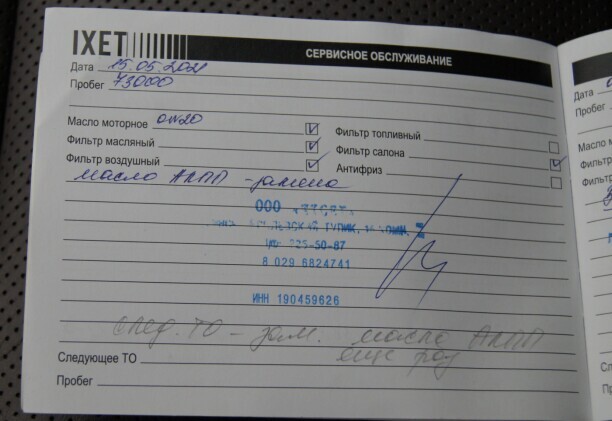 IXET
СЕРВИСНОЕ ОБСЛУЖИВАНИЕ
Дата 15.05.2021
Пробег 73000
Масло моторное 0W20
Фильтр масляный
Фильтр воздушный
Фильтр топливный
Фильтр салона
Антифриз
масло АКПП - замена
ООО
ТУПИК,
-50-87
8 029 6824741
ИНН 190459626
след. ТО - зам. масло АКПП
еще раз
Следующее ТО
Пробег
Дата
Пробег